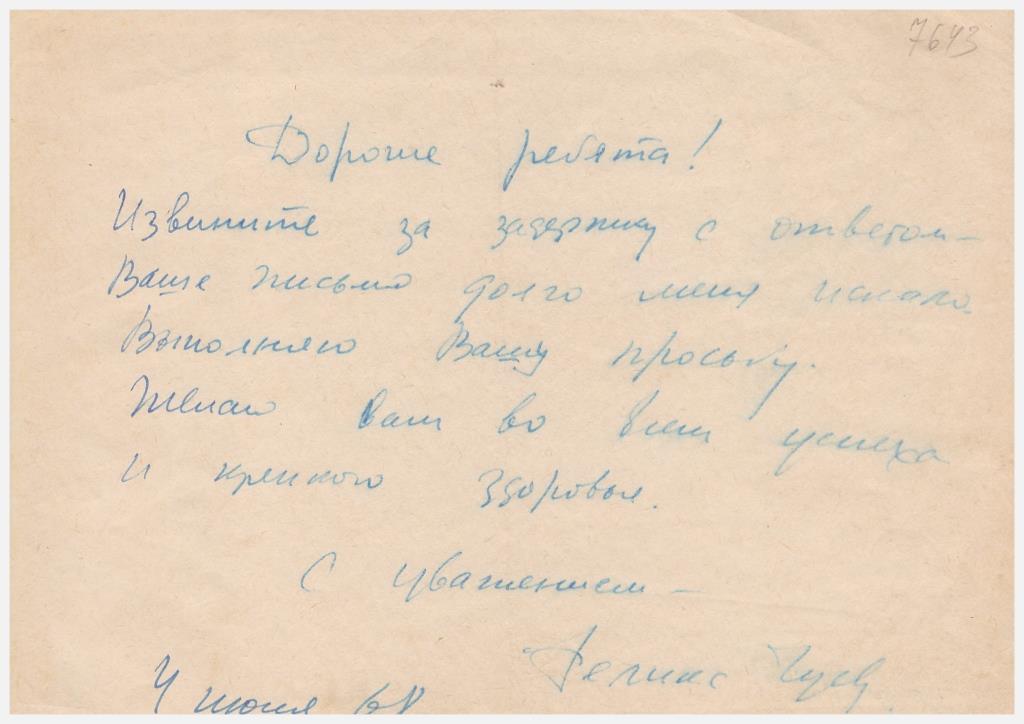 7643
Дорогие ребята!
Извините за задержку с ответом –
Ваше письмо долго меня искало.
Выполняю Вашу просьбу.
Желаю вам во всем успеха
и крепкого здоровья.
С уважением –
Феликс Чуев
4 июня 68